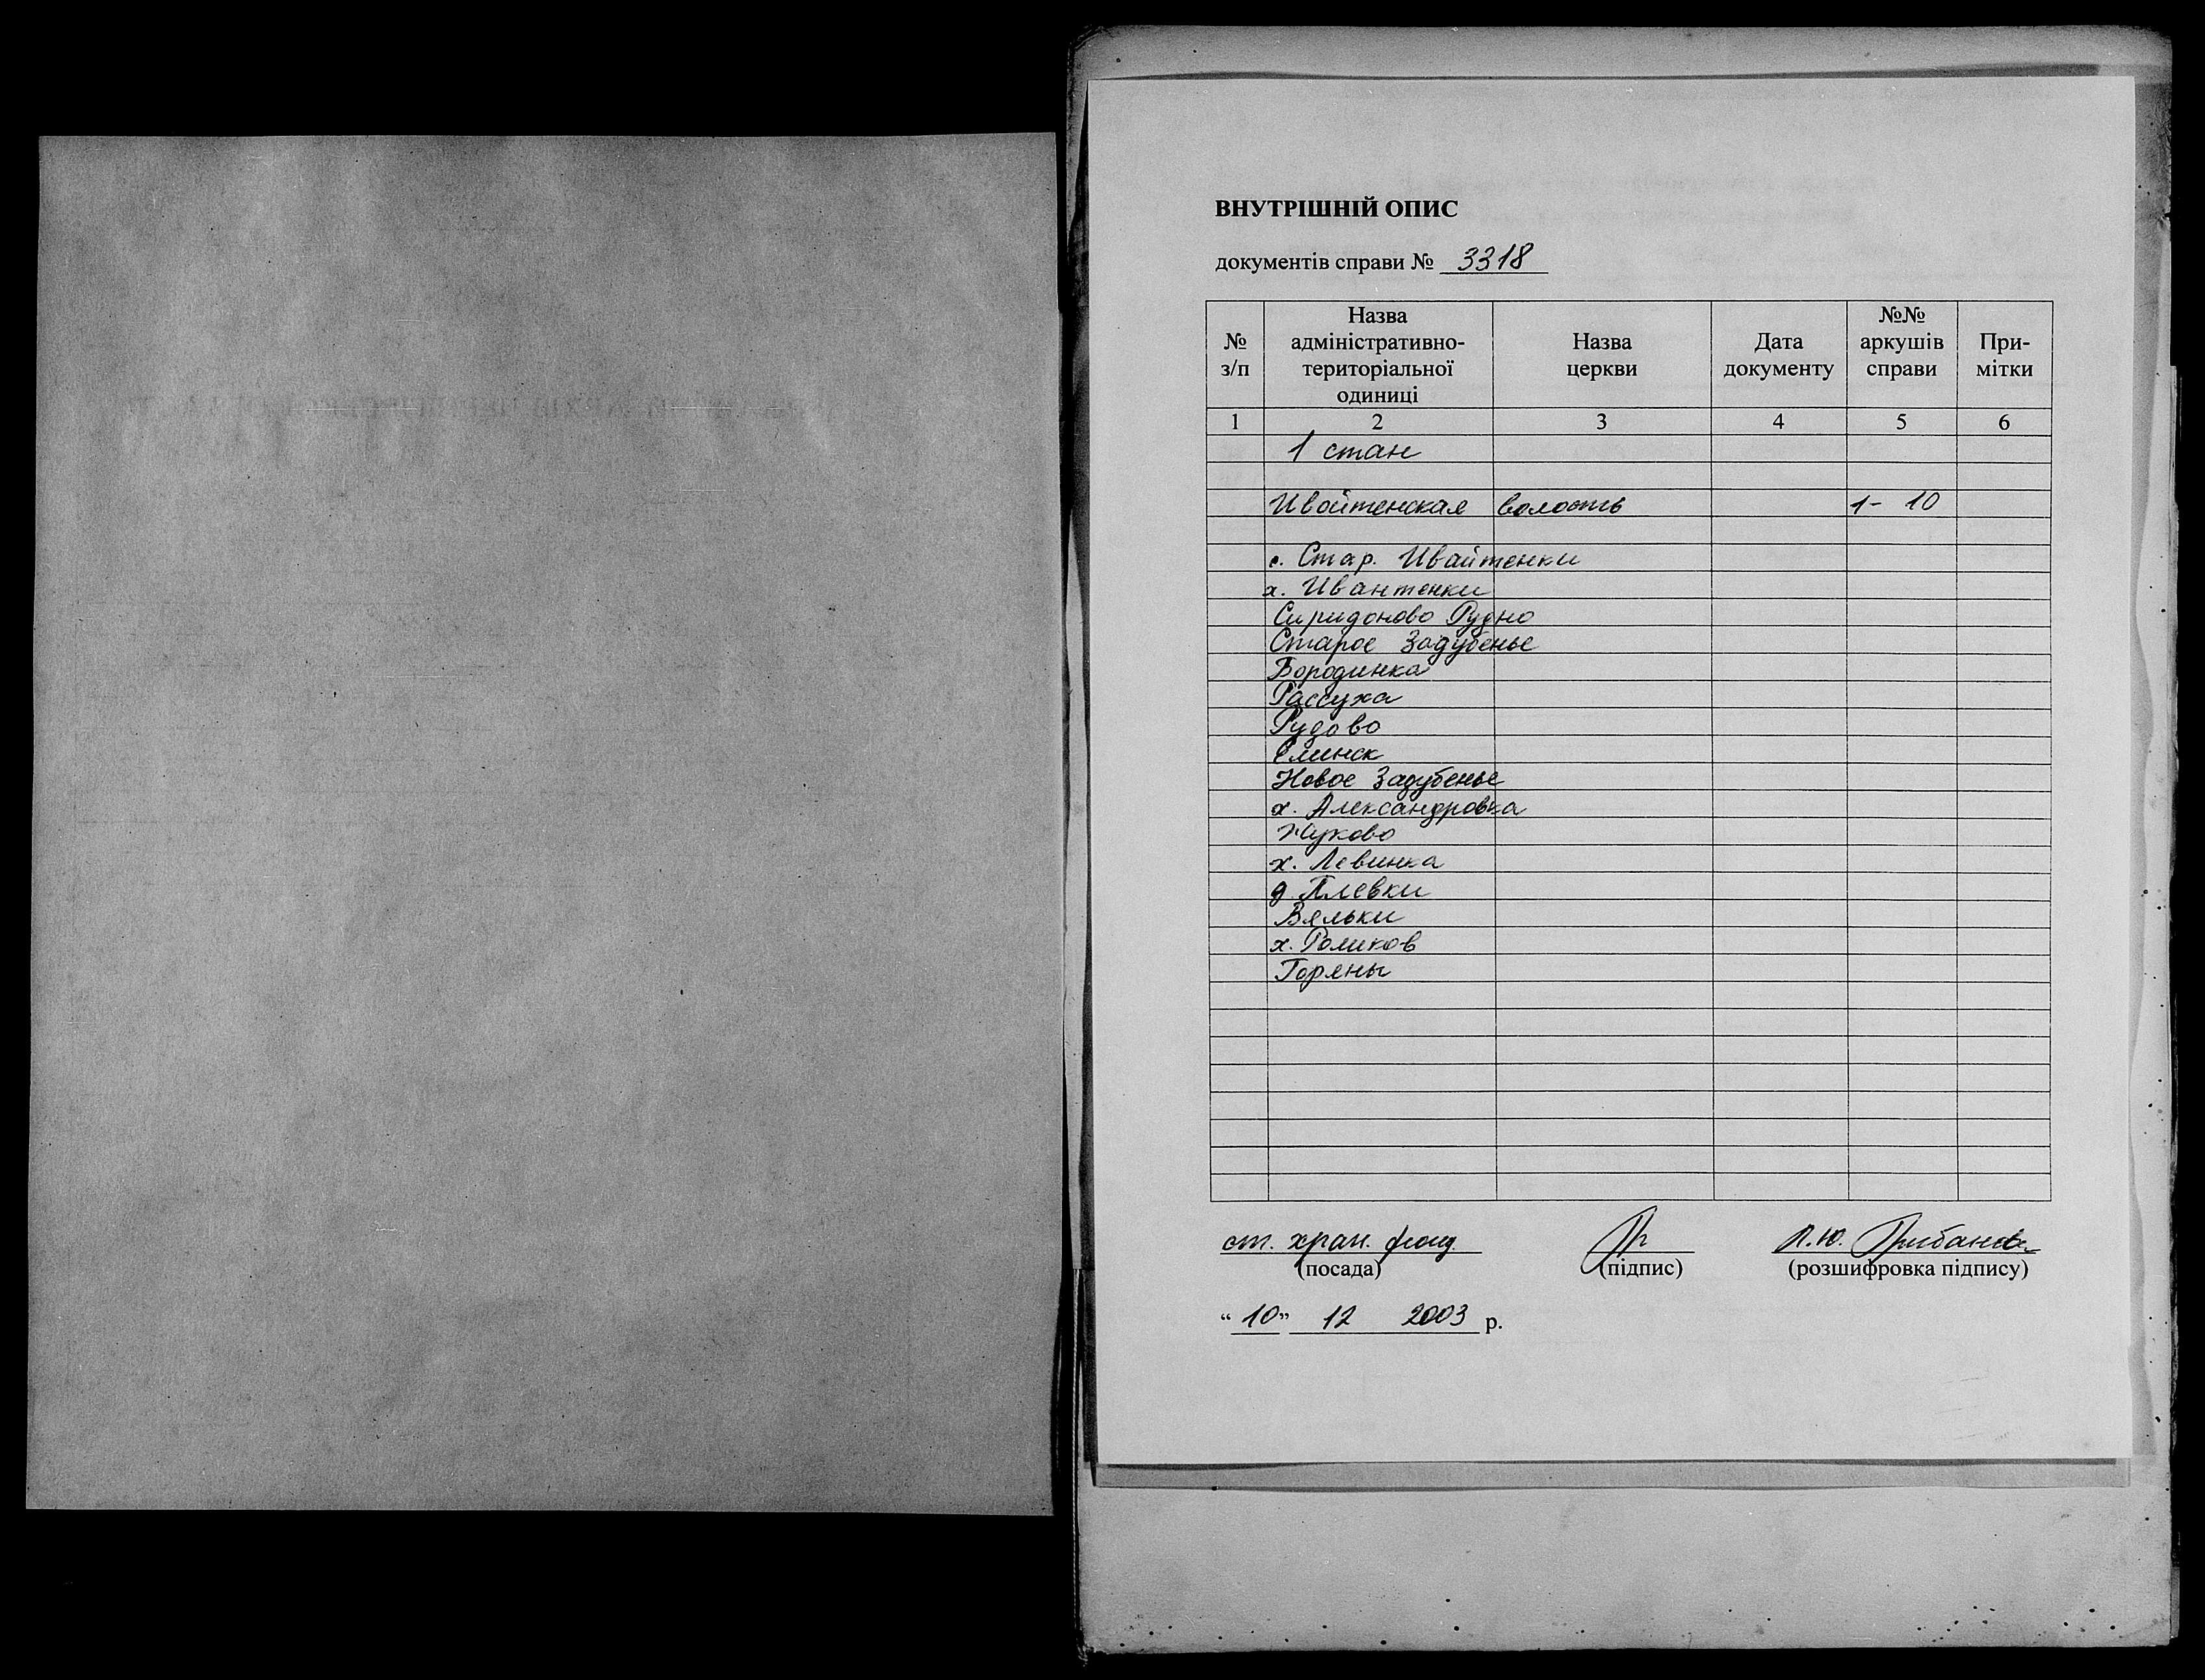 ВНУТРІШНІЙ ОПИС
документів справи № 3318
№ з/п
Назва адміністративно-територіальної одиниці
Назва церкви
Дата документу
№№ аркушів справи
При-мітки
1 2 3 4 5 6
1 стан
Ивойтенская волость 1- 10
с. Стар. Ивайтенки
х. Ивантенки
Спиридоново Рудно
Старое Задубенье
Бородинка
Рассуха
Рудово
Елинск
Новое Задубенье
х. Александровка
Жуково
х. Левинка
д. Плевки
Вяльки
х. Роликов
Горяны
ст. хран. фонд.
(посада) (підпис) (розшифровка підпису)
“ 10 ” 12 2003 р.